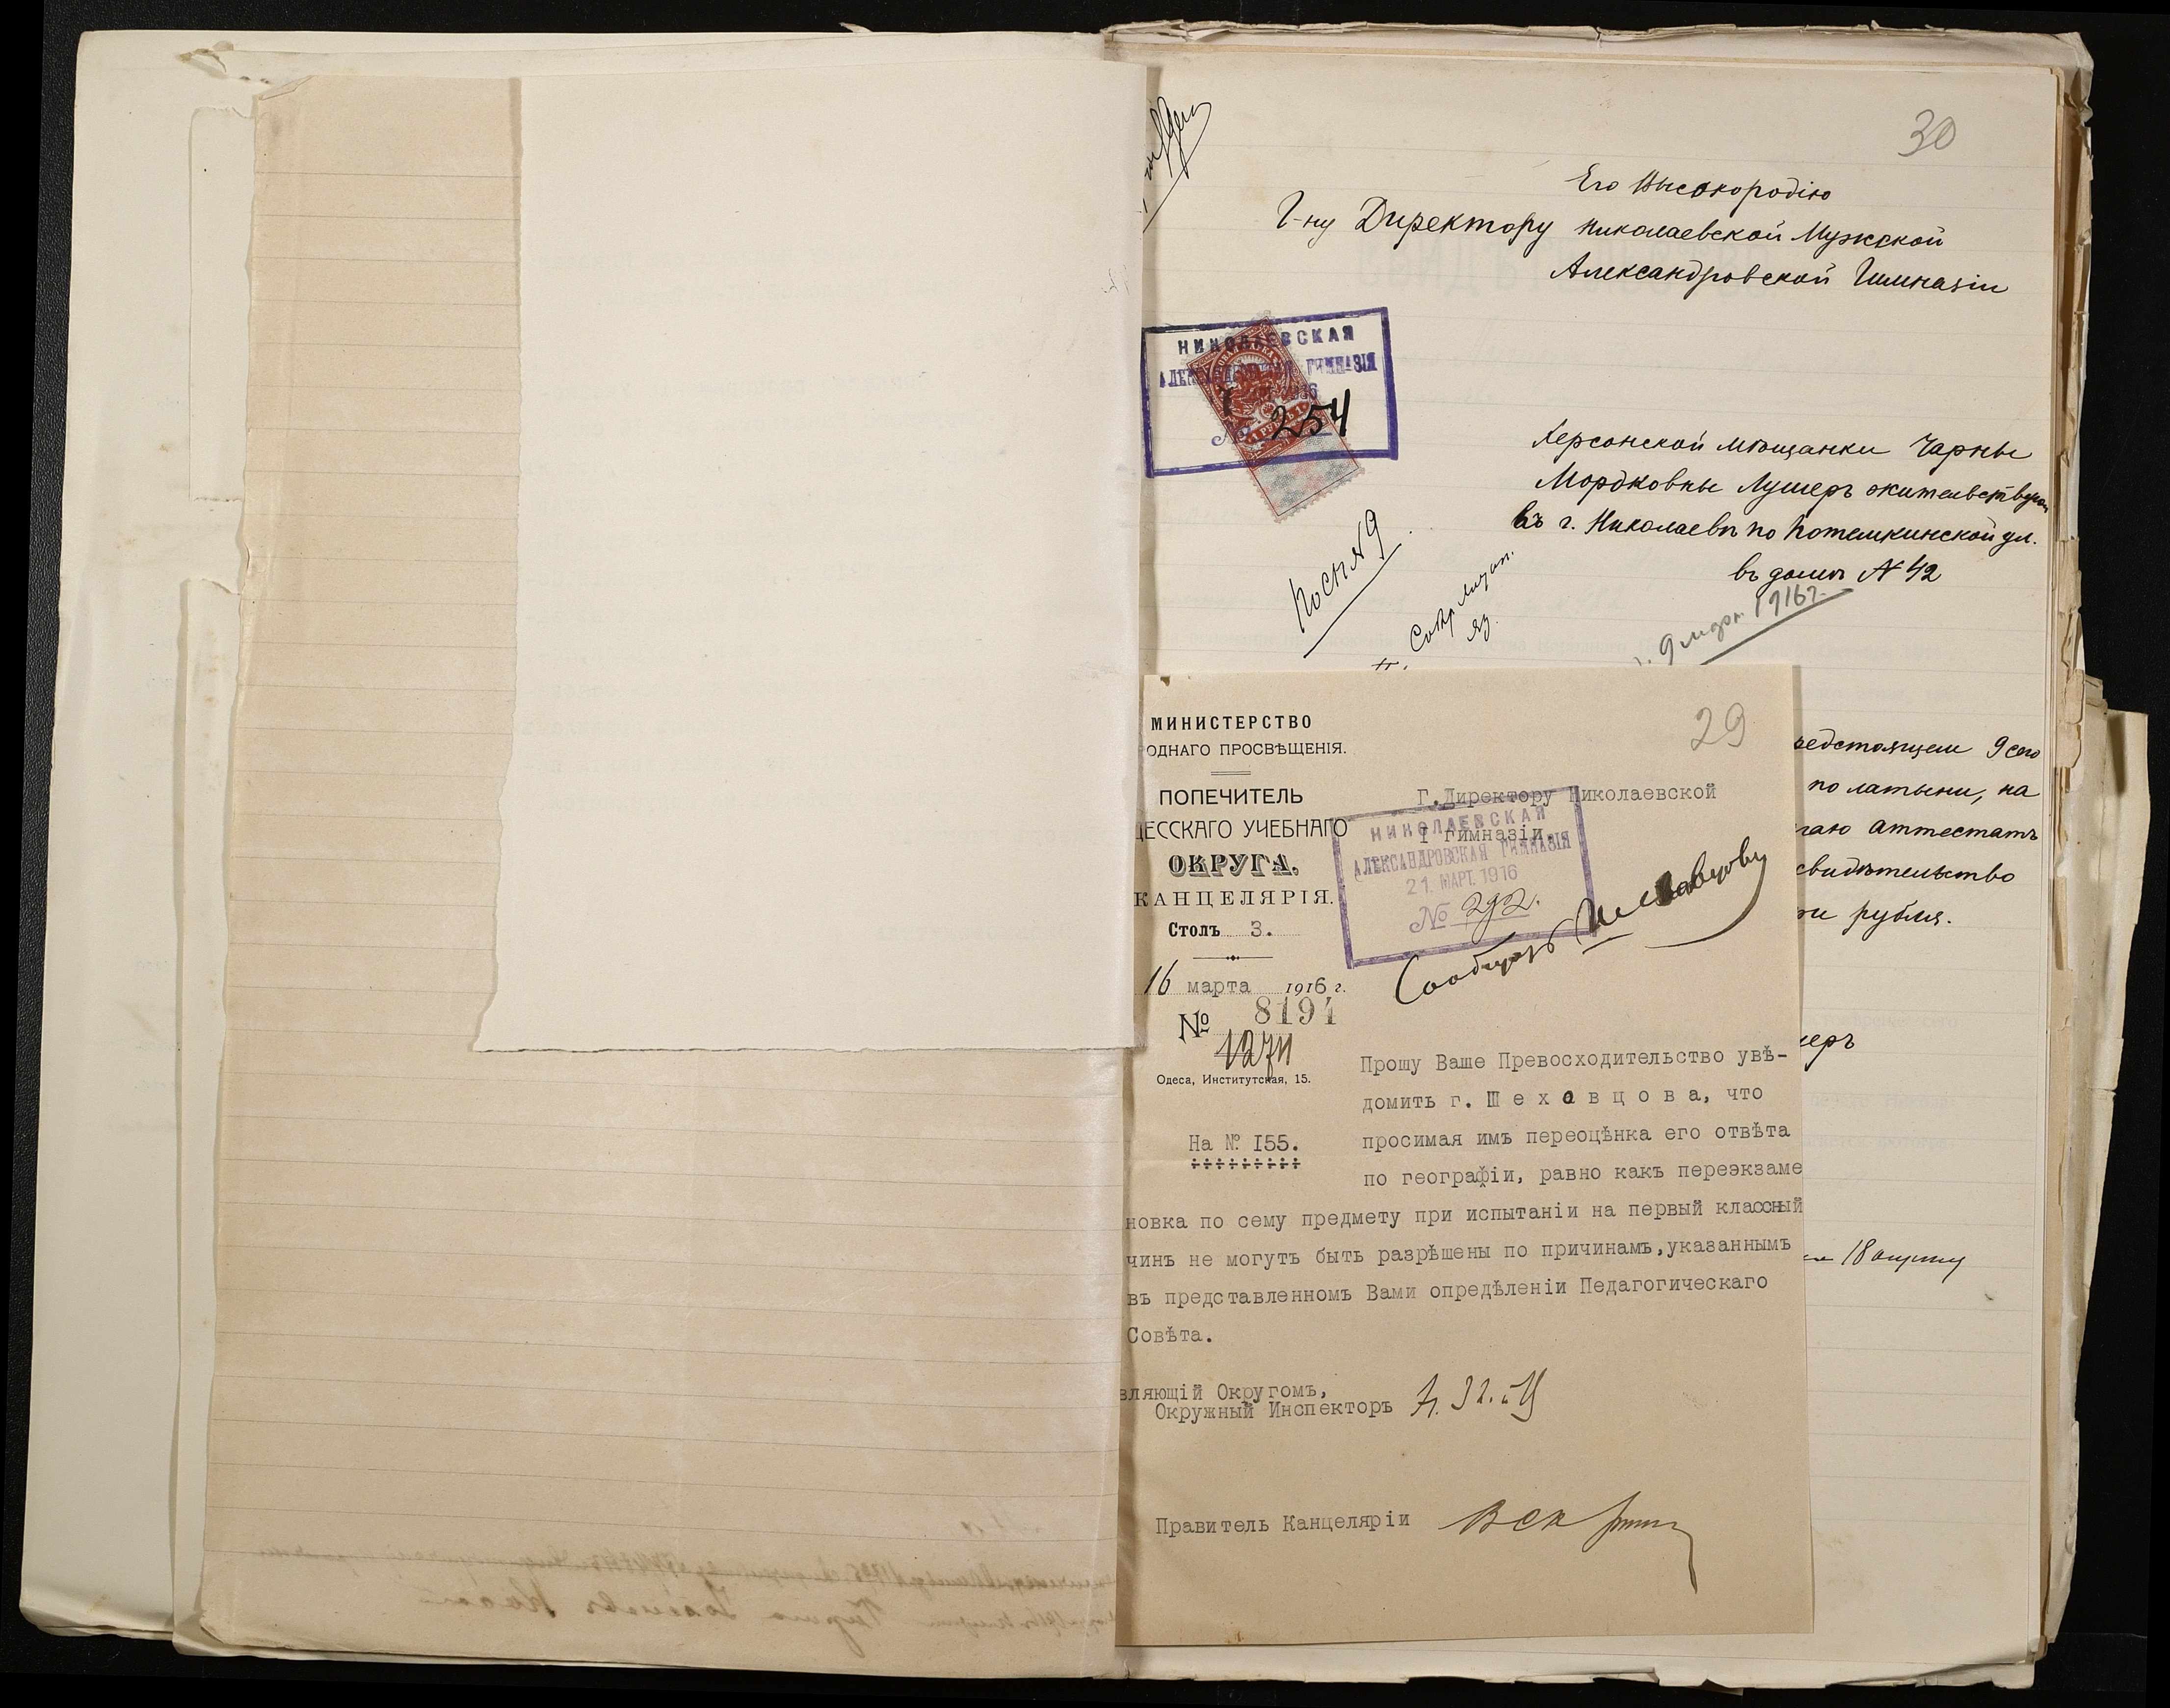 30
Его Высокородію
Г-ну Директору Николаевской Мужской
Александровской Гимназіи
НИКОЛАЕВСКАЯ
АЛЕКСАНДРОВСКАЯ ГИМНАЗІЯ
№ 254
1 РУБЛЬ 1
Херсонской мѣщанки Чарны
Мордковны Лушеръ жительствующ
въ г. Николаевѣ по Потемкинской ул.
въ домѣ № 42
1916 г.
едстоящем 9 сего
по латыни, на
гаю аттестатъ
свидѣтельство
ри рубля.
шеръ
МИНИСТЕРСТВО
ОДНАГО ПРОСВѢЩЕНІЯ.
ПОПЕЧИТЕЛЬ
ДЕССКАГО УЧЕБНАГО
ОКРУГА.
КАНЦЕЛЯРІЯ.
Столъ 3.
16 марта 1916 г.
№ 8194
1274
Одеса, Институтская, 15.
На № I55.
29
Г.Директору Николаевской
I гимназіи.
НИКОЛАЕВСКАЯ
АЛЕКСАНДРОВСКАЯ ГИМНАЗІЯ
21. МАРТ. 1916
№ 292.
Сообщить Шехавцову
Прошу Ваше Превосходительство увѣ-
домить г. Ш е х а в ц о в а, что
просимая имъ переоцѣнка его отвѣта
по географіи, равно какъ переэкзаме
новка по сему предмету при испытаніи на первый классный
чинъ не могутъ быть разрѣшены по причинамъ,указаннымъ
въ представленномъ Вами опредѣленіи Педагогическаго
Совѣта.
вляющій Округомъ,
Окружный Инспекторъ
Правитель Канцеляріи